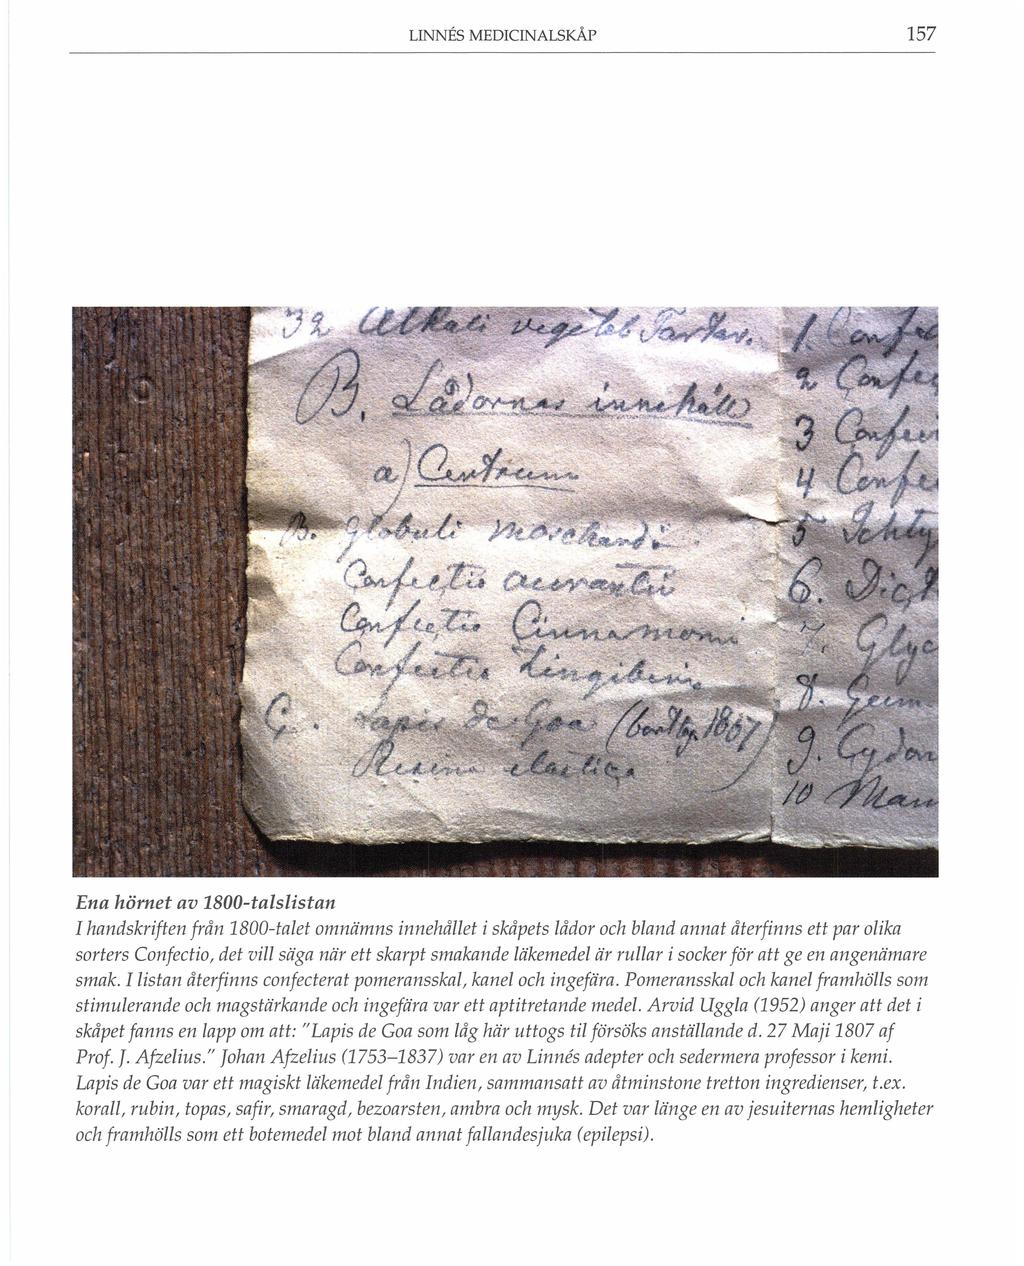 LINNÉS MEDICINALSKÅP 157
32 Alkali vegetab Tartar.
B. Lådornas innehåll
a) Centrum
B. Globuli moschardi
Confectio aurantii
Confectio Cinnamomi
Confectio Zingiberis
C. Lapis de Goa (borttog. 1807)
Resina elastica
1. Confec
2 Confec
3 Confec
4 Confe
5 Ichty
6. Dict
7. Glyc
8. Geum
9. Cydon
10 Man
Ena hörnet av 1800-talslistan
I handskriften från 1800-talet omnämns innehållet i skåpets lådor och bland annat återfinns ett par olika
sorters Confectio, det vill säga när ett skarpt smakande läkemedel är rullar i socker för att ge en angenämare
smak. I listan återfinns confecterat pomeransskal, kanel och ingefära. Pomeransskal och kanel framhölls som
stimulerande och magstärkande och ingefära var ett aptitretande medel. Arvid Uggla (1952) anger att det i
skåpet fanns en lapp om att: "Lapis de Goa som låg här uttogs til försöks anställande d. 27 Maji 1807 af
Prof. J. Afzelius." Johan Afzelius (1753–1837) var en av Linnés adepter och sedermera professor i kemi.
Lapis de Goa var ett magiskt läkemedel från Indien, sammansatt av åtminstone tretton ingredienser, t.ex.
korall, rubin, topas, safir, smaragd, bezoarsten, ambra och mysk. Det var länge en av jesuiternas hemligheter
och framhölls som ett botemedel mot bland annat fallandesjuka (epilepsi).